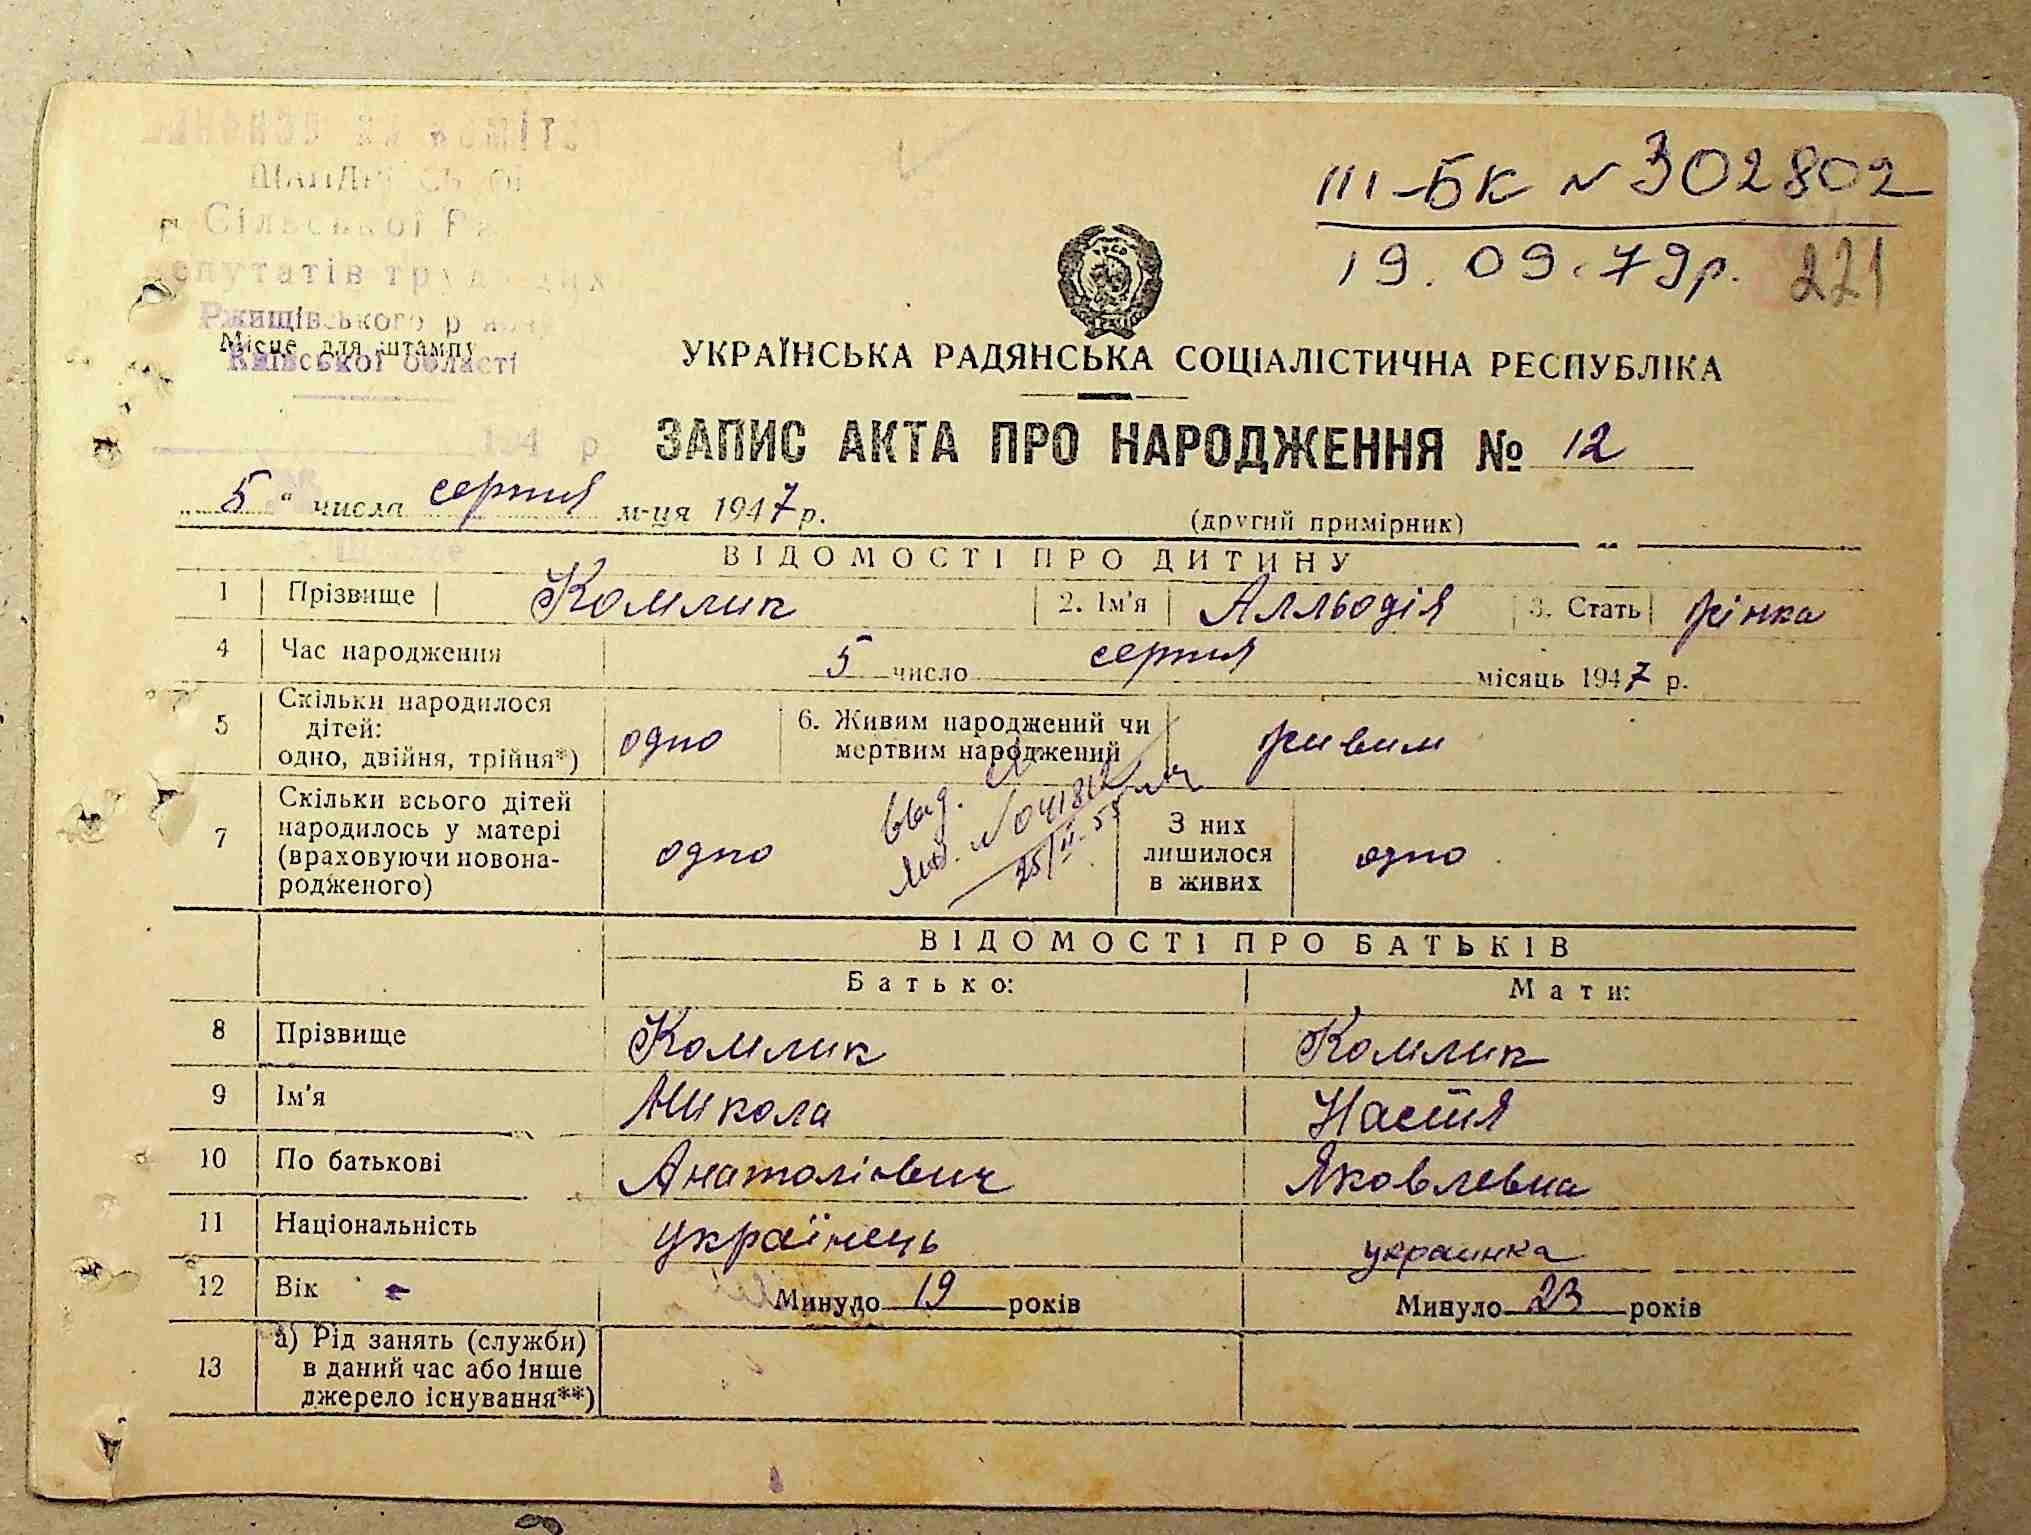 Сільської
депутатів
Ржищівського
Місце для штампу
Київської області
194 р
III-БК № 302802
19.09.79р.
221
УРСР
УКРАЇНСЬКА РАДЯНСЬКА СОЦІАЛІСТИЧНА РЕСПУБЛІКА
ЗАПИС АКТА ПРО НАРОДЖЕННЯ № 12
„5“ числа серпня м-ця 1947 р.
(другий примірник)
ВІДОМОСТІ ПРО ДИТИНУ
1 Прізвище Комлик 2. Ім'я Алльодія 3. Стать жінка
4 Час народження 5 число серпня місяць 1947 р.
5 Скільки народилося дітей: одно, двійня, трійня*) одно 6. Живим народжений чи мертвим народжений живим
7 Скільки всього дітей народилось у матері (враховуючи новонародженого) одно З них лишилося в живих одно
ВІДОМОСТІ ПРО БАТЬКІВ
Батько: Мати:
8 Прізвище Комлик Комлик
9 Ім'я Микола Настя
10 По батькові Анатолієвич Яковлевна
11 Національність українець украинка
12 Вік Минуло 19 років Минуло 23 років
13 а) Рід занять (служби) в даний час або інше джерело існування**)